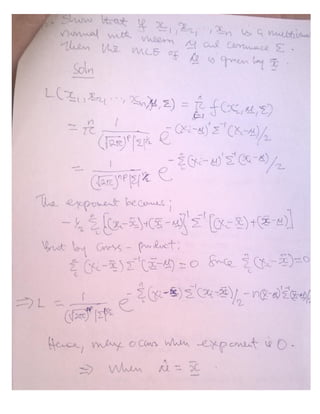 Show that if x₁, x₂, ..., xₙ is a
normal with mean μ and Σ.
then the MLE of μ is given by x̄.
Soln
L(x₁, x₂, ..., xₙ/μ, Σ) = π f(xᵢ, μ, Σ)
= π 1/((√2π)^p |Σ|^½) e^-(xᵢ-μ)'Σ⁻¹(xᵢ-μ)/2
= 1/((√2π)^np |Σ|^½) e^-Σ(xᵢ-μ)'Σ⁻¹(xᵢ-μ)/2
The exponent becomes;
-½ Σ [(xᵢ-x̄)+(x̄-μ)]'Σ⁻¹[(xᵢ-x̄)+(x̄-μ)]
But by cross-product;
Σ(xᵢ-x̄)Σ⁻¹(x̄-μ)=0 Since Σ(xᵢ-x̄)=0
⇒ L = 1/((√2π)^np |Σ|^½) e^-Σ(xᵢ-x̄)'Σ⁻¹(xᵢ-x̄)/2 - n(x̄-μ)'Σ⁻¹(x̄-μ)/2
Hence, max occurs when exponent is 0.
⇒ when μ̂ = x̄.